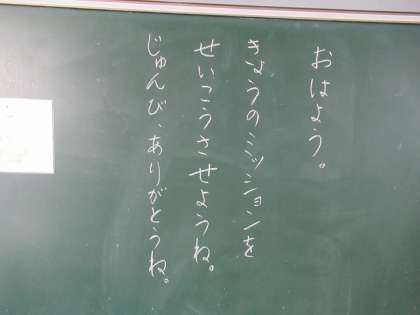 おはよう。
きょうのミッションを
せいこうさせようね。
じゅんび、ありがとうね。